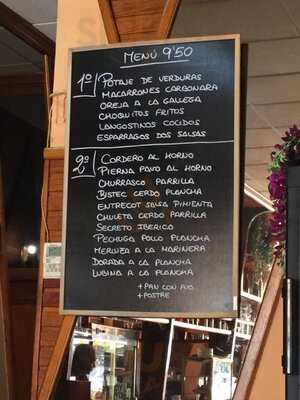 MENÚ 9'50
1º POTAJE DE VERDURAS
MACARRONES CARBONARA
OREJA A LA GALLEGA
CHOQUITOS FRITOS
LANGOSTINOS COCIDOS
ESPARRAGOS DOS SALSAS
2º CORDERO AL HORNO
PIERNA PAVO AL HORNO
CHURRASCO PARRILLA
BISTEC CERDO PLANCHA
ENTRECOT SALSA PIMIENTA
CHULETA CERDO PARRILLA
SECRETO IBERICO
PECHUGA POLLO PLANCHA
MERLUZA A LA MARINERA
DORADA A LA PLANCHA
LUBINA A LA PLANCHA
+ PAN CON AJO
+ POSTRE